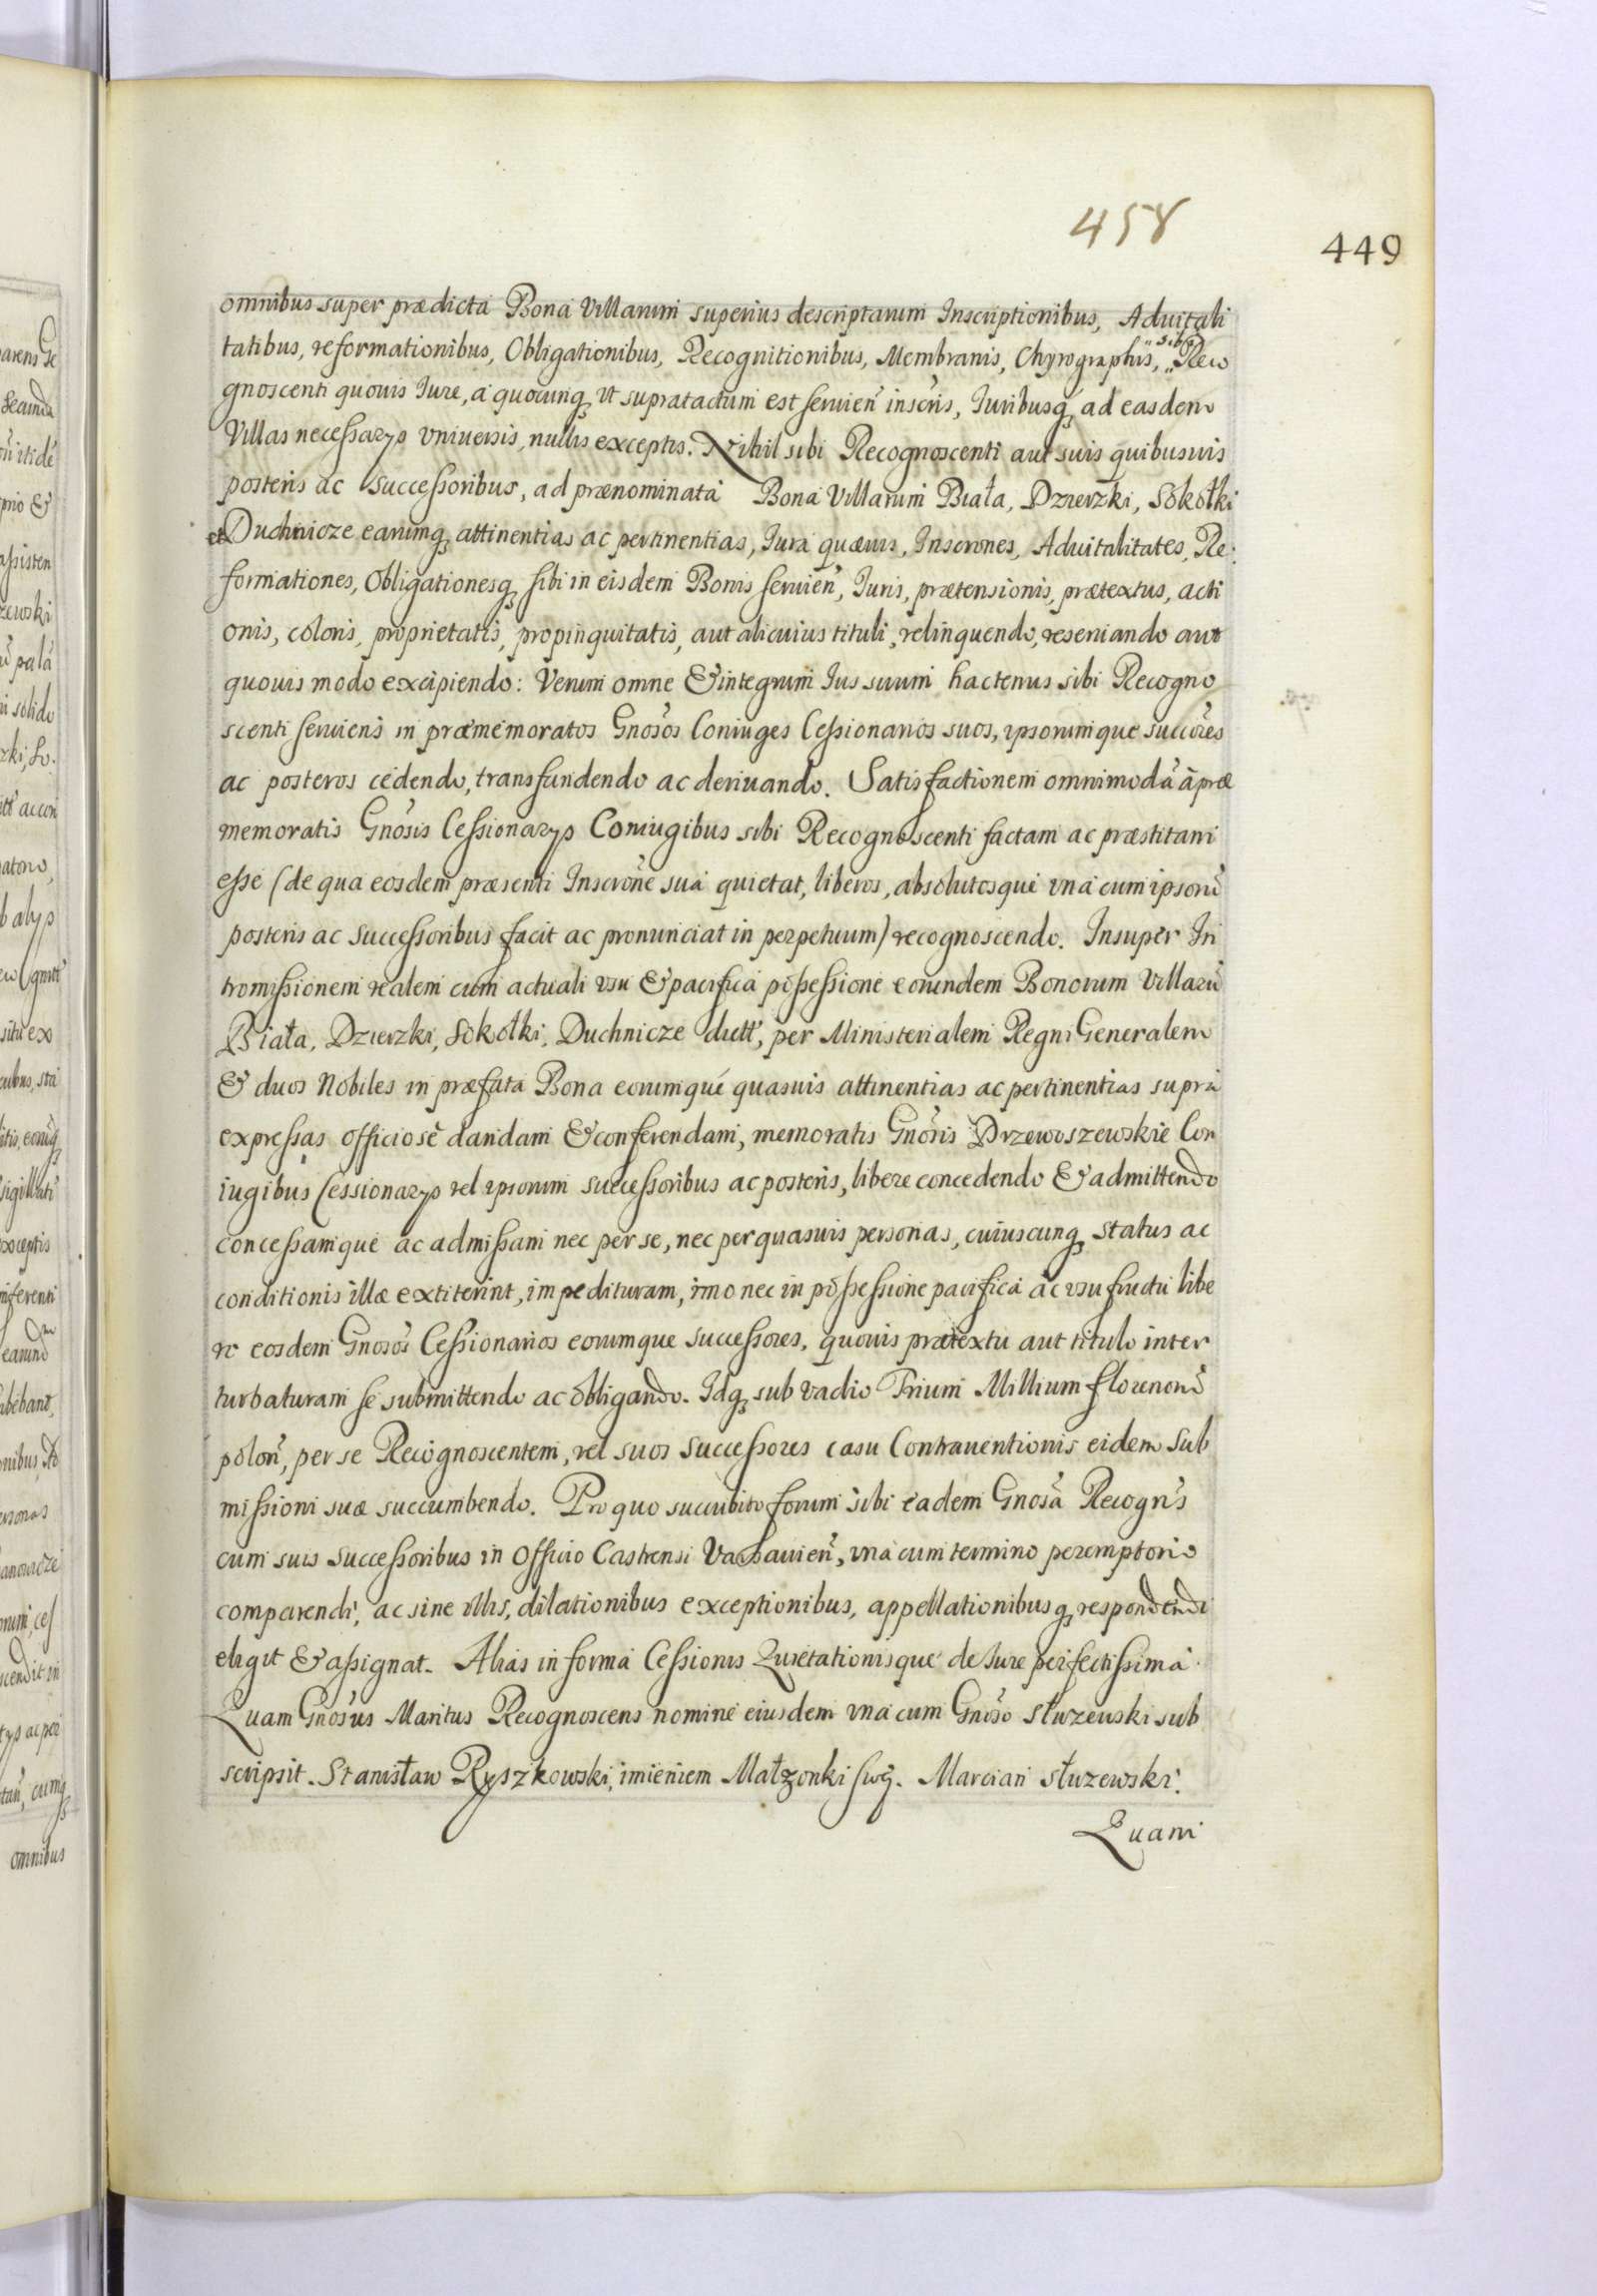 458
449
omnibus super prædicta Bona Villarum superius descriptarum Inscriptionibus, Aduitali
tatibus, reformationibus, Obligationibus, Recognitionibus, Membranis, Chyrographis, "sibi" Reco
gnoscenti quouis Iure, a quocunq̧ vt supratactum est seruien̄ inscr̄is, Iuribusq̧ ad easdem
Villas necessarys vniuersis, nullis exceptis. Nihil sibi Recognoscenti aut suis quibusuis
posteris ac Successoribus, ad prænominata Bona Villarum Biała, Dzierzki, Sokołki
et Duchnicze earumq̧ attinentias ac pertinentias, Iura quæuis, Inscr̄ones, Aduitalitates, Re:
formationes, Obligationesq̧ sibi in eisdem Bonis seruien̄, Iuris, prætensionis, prætextus, acti
onis, coloris, proprietatis, propinquitatis, aut alicuius tituli, relinquendo, reseruando aut
quouis modo excipiendo: Verum omne & integrum Ius suum hactenus sibi Recogno
scenti seruiens in præmemoratos Gnōsos Coniuges Cessionarios suos, ipsorumque succōres
ac posteros cedendo, transfundendo ac deriuando. Satisfactionem omnimodā à præ
memoratis Gnōsis Cessionarys Coniugibus sibi Recognoscenti factam ac præstitam
esse (de qua eosdem præsenti Inscrōne sua quietat, liberos, absolutosque vna cum ipsorū
posteris ac successoribus facit ac pronunciat in perpetuum) recognoscendo. Insuper In
tromissionem realem cum actuali vsu & pacifica possessione eorundem Bonorum Villarū
Biała, Dzierzki, Sokołki, Duchnicze dictt̄, per Ministerialem Regni Generalem
& duos Nobiles in præfata Bona eorumque quasuis attinentias ac pertinentias supra
expressas officiosè dandam & conferendam, memoratis Gnōsis Drzewoszewskie Con
iugibus Cessionarys vel ipsorum successoribus ac posteris, libere concedendo & admittendo
concessamque ac admissam nec per se, nec per quasuis personas, cuiuscunq̧ status ac
conditionis illæ extiterint, impedituram, imo nec in possessione pacifica ac vsufructu libe
ro eosdem Gnōsos Cessionarios eorumque successores, quouis prætextu aut titulo inter
turbaturam se submittendo ac obligando. Idq̧ sub vadio Trium Millium florenorū
polon̄, per se Recognoscentem, vel suos Successores casu Contrauentionis eidem Sub
missioni suæ succumbendo. Pro quo succubito forum sibi eadem Gnōsa Recogn̄s
cum suis Successoribus in Officio Castrensi Varsauien̄, vna cum termino peremptorio
comparendi, ac sine illis, dilationibus exceptionibus, appellationibusq̧ respondendi
eligit & assignat. Alias in forma Cessionis Quietationisque de Iure perfectissima.
Quam Gnōsus Maritus Recognoscens nomine eiusdem vna cum Gnōso Słuzewski sub
scripsit. Stanisław Ryszkowski, imieniem Małzonki swej. Marcian Słuzewski.
Quam